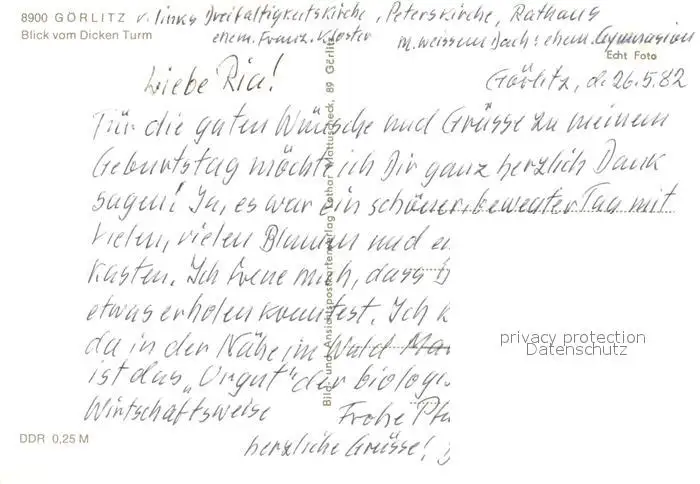 8900 GÖRLITZ v. links Dreifaltigkeitskirche, Peterskirche, Rathaus
Blick vom Dicken Turm ehem. Franz. Kloster m. weissem Dach: ehem. Gymnasion
Echt Foto
Görlitz, d. 26.5.82
Liebe Ria!
Für die guten Wünsche und Grüsse zu meinem
Geburtstag möcht ich Dir ganz herzlich Dank
sagen! Ja, es war ein schöner, bewegter Tag mit
vielen, vielen Blumen und
kasten. Ich freue mich, dass
etwas erholen konntest. Ich
da in der Nähe im Wald
ist das „Urgut" der biologi
Wirtschaftsweise Frohe Pf
herzliche Grüsse!
DDR 0,25 M
Bild- und Ansichtspostkartenverlag Lothar Mattuscheck, 89 Görlitz
privacy protection
Datenschutz